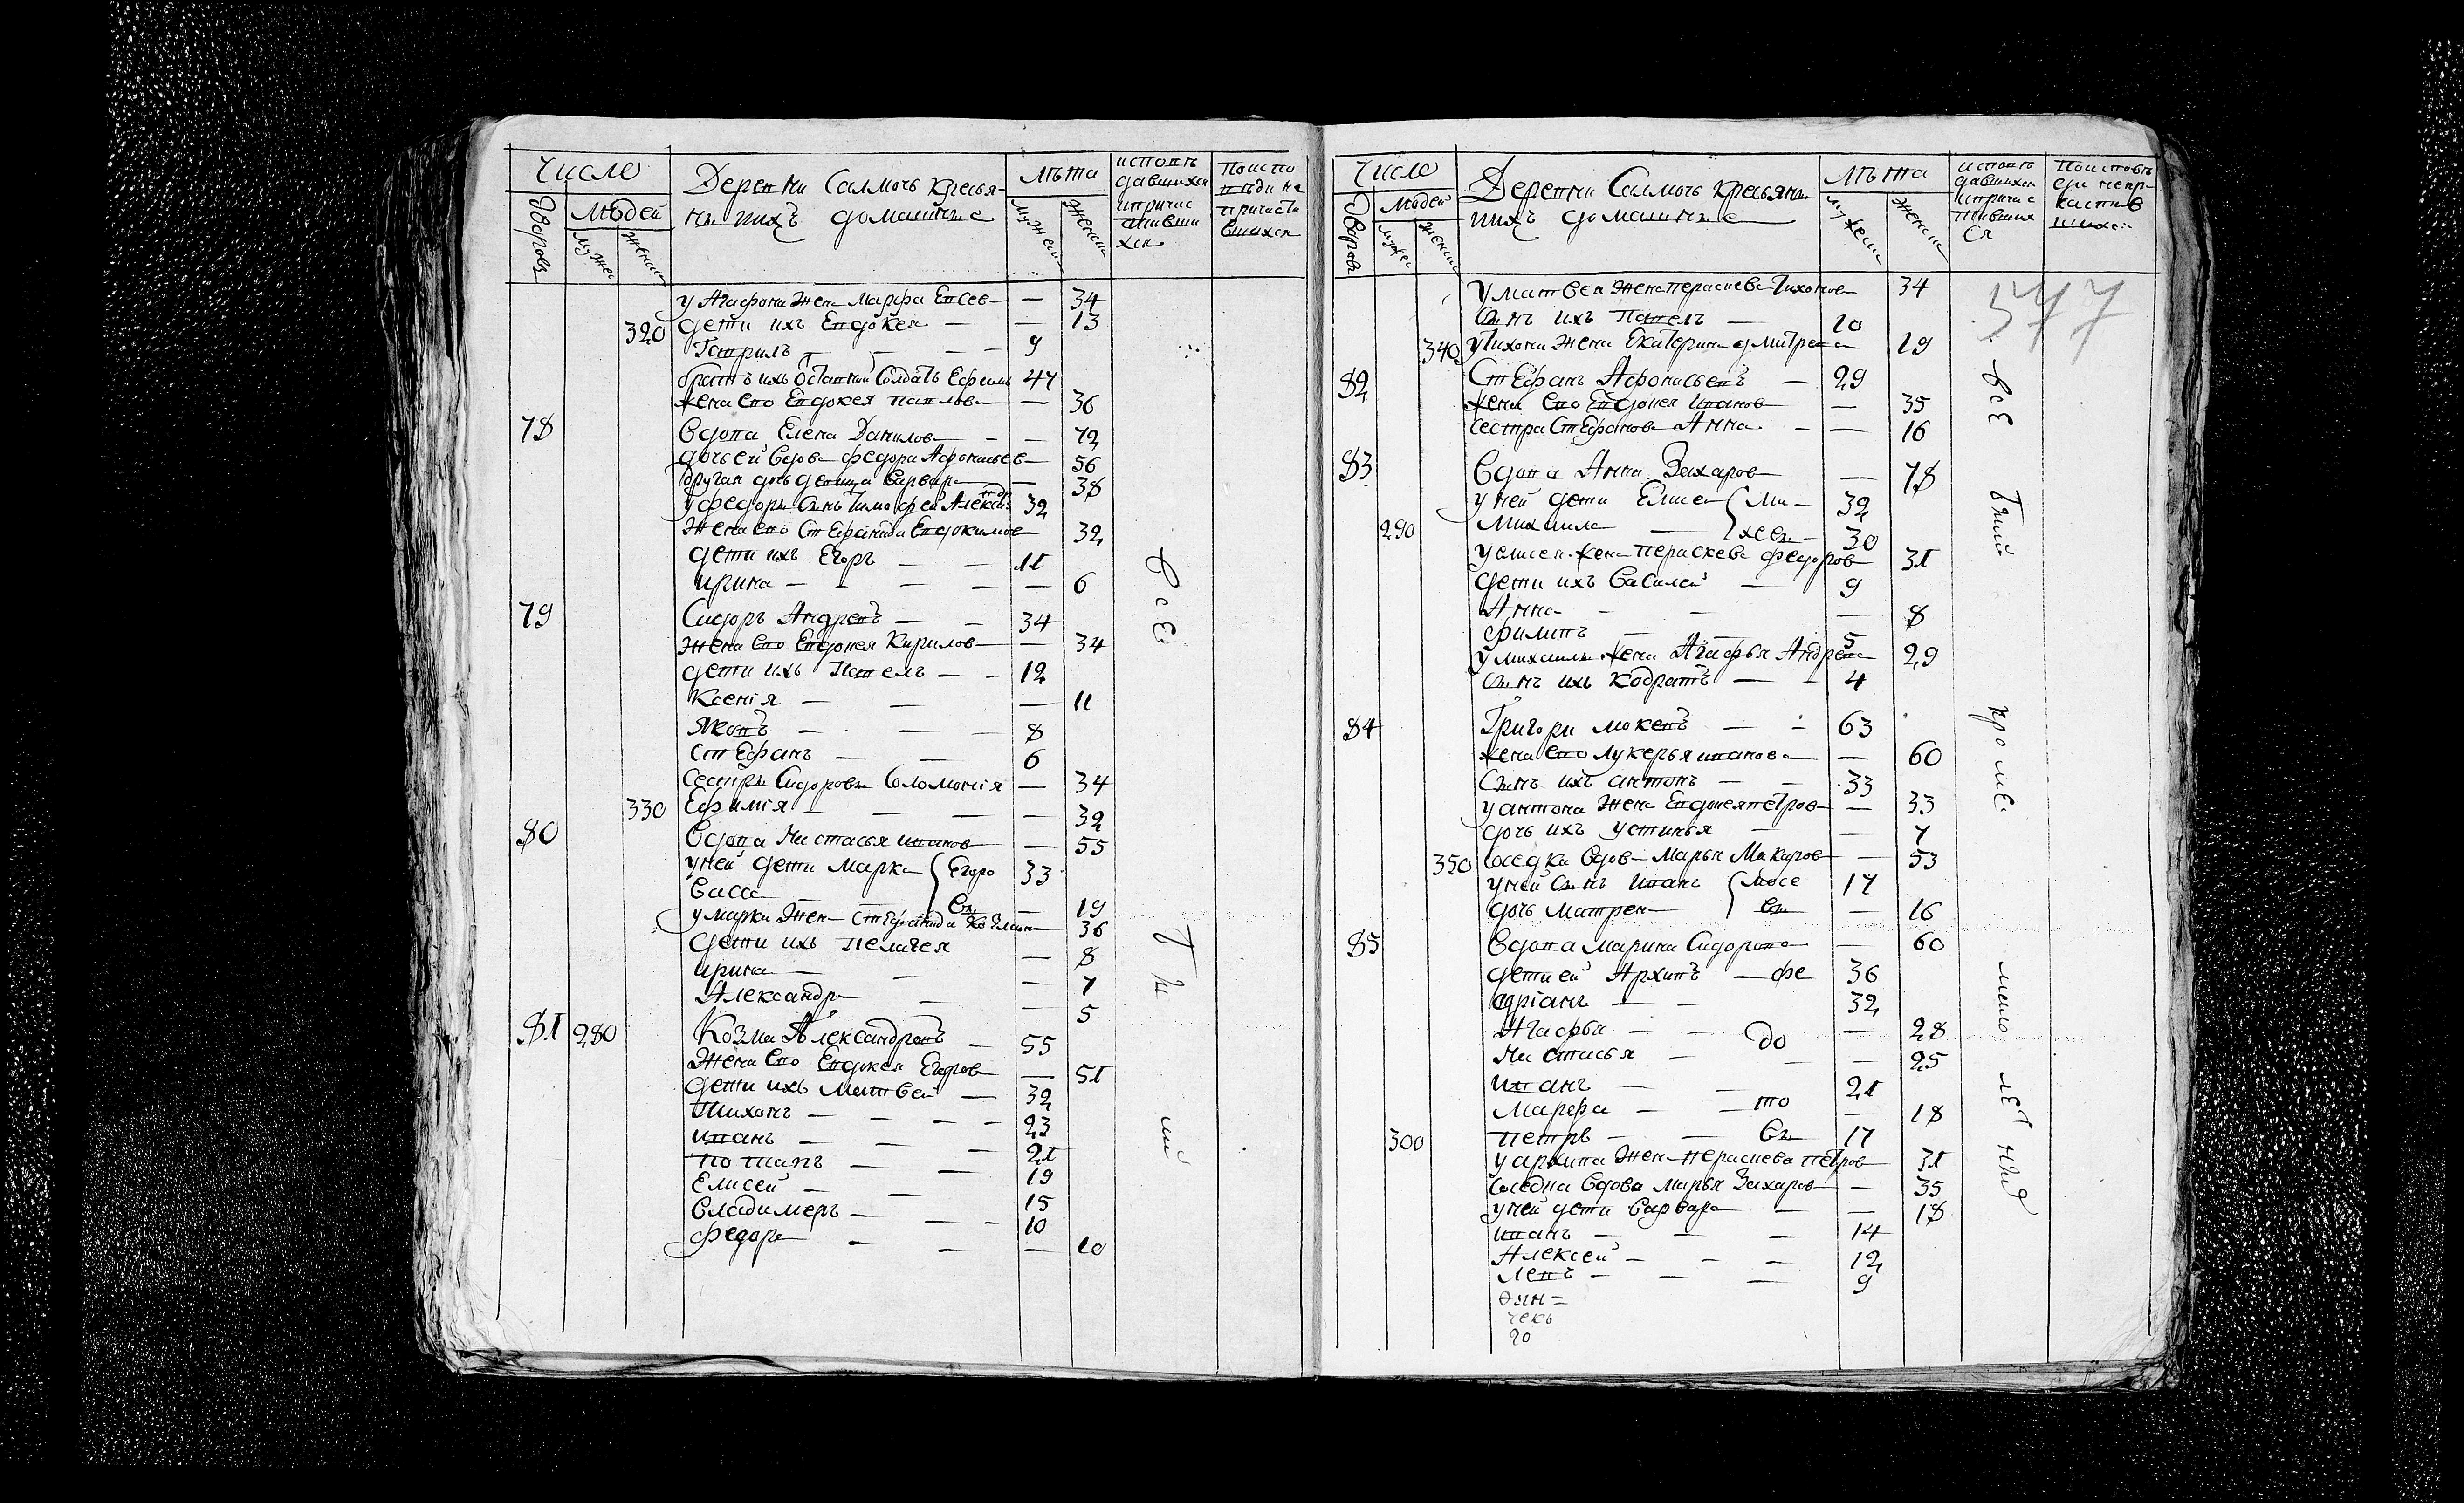 Число
Деревни Салмочь Крестья-
не ихъ домашние
Лѣта
исповѣ
давшихся
и причас
тивши
хся
По испо
веди не
причасти
вшихся
Дворовъ
Людей
мужес
женск
мужеск
женск
у Агафона жена Марфа Евсев — 34
320 дети ихъ Евдокея — — 13
Гаврилъ — — — 9
братъ ихъ Отставной Солдатъ Ефимъ 47
жена ево Евдокея Павлова — 36
78 Вдова Елена Данилова — — 72
дочь ей Вдова Федора Афонасьев — 56
другая дочь девица Варвара — 38
у Федоры сынъ Тимофей Алексан 32
жена ево Стефанида Евдокимов 32
дети ихъ Егоръ — — 11
Ирина — — — — 6
79 Сидоръ Андревъ — — 34
жена ево Евдокея Кирилов — 34
дети ихъ Павелъ — — 12
Ксенія — — — 11
Яковъ — — — 8
Стефанъ — — 6
Сестры Сидоровы Соломонія — 34
330 Ефимія — — — — 32
80 Вдова Настасья Иванов — 55
у ней дети Марка Егоро 33
Васса — — вы — 19
у Марки жена Стефанида Козмин 36
дети ихъ Пелагея — 8
Ирина — — — 7
Александра — — 5
81 280 Козма Александровъ — 55
жена ево Евдокея Егоров — 51
дети ихъ Матвей — 32
Тихонъ — — — 23
Иванъ — — — 21
Потапъ — — 19
Елисей — — 15
Владимеръ — — — 10
Федора — — — 10
всѣ
Число
Деревни Салмочь крестьяня
ихъ домашние
Лѣта
исповѣ
давшихся
и причас
тивших
ся
По исповѣ
ди непри
частив
шихся
Дворовъ
Людей
мужес
женск
мужеск
женск
577
у Матвея жена Пераскева Тихонов 34
сынъ ихъ Павелъ — 10
340 у Тихона жена Екатерина Дмитрева 19
82 Стефанъ Афонасьевъ — 29
жена ево Евдокея Иванов — 35
сестра Стефанова Анна — — 16
83 Вдова Анна Захаров — 78
у ней дети Елисей Ми — 32
290 Михаила — хеевы — 30
у Елисея жена Пераскева Федоров 31
дети ихъ Василей — 9
Анна — — — 8
Филипъ — — 5
у Михаилы жена Агафья Андрева 29
сынъ ихъ Кодратъ — — 4
84 Григори Мокевъ — — 63
жена ево Лукерья Иванова — 60
сынъ ихъ Антонъ — — 33
у Антона жена Евдокея Петров — 33
дочь ихъ Устинья — — 7
350 соседка Вдова Марья Макаров — 53
у ней сынъ Иванъ Мосе 17
дочь Матрена вы — 16
85 Вдова Марина Сидорова — 60
дети ей Архипъ — Фе 36
Адріанъ — — 32
Агафья — — до — 28
Настасья — — 25
Иванъ — — 21
Марфа — — то — 18
300 Петръ — — вы 17
у Архипа жена Пераскева Петров 31
соседка Вдова Марья Захаров — 35
у ней дети Варвара — — 18
Иванъ — — — 14
Алексей — — — 12
Левъ — — — 9
всѣ
кромѣ
мало